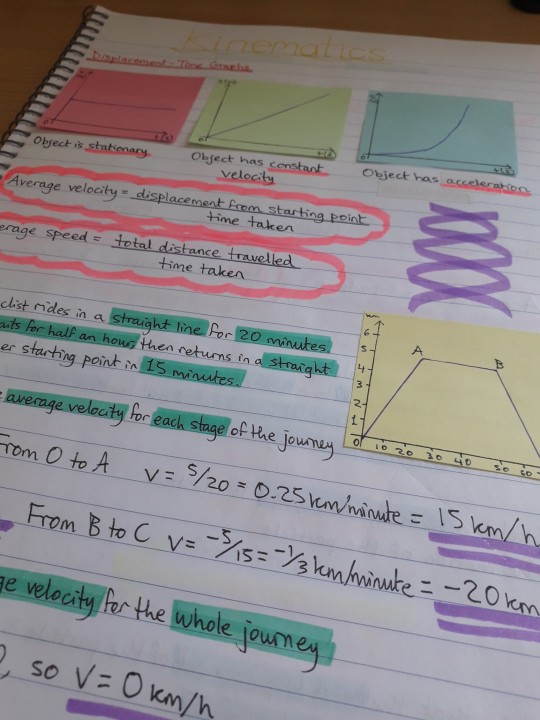 Kinematics
Displacement - Time Graphs
t(s)
t(s)
t(s)
Object is stationary
Object has constant
velocity
Object has acceleration
Average velocity = displacement from starting point
time taken
erage speed = total distance travelled
time taken
clist rides in a straight line for 20 minutes.
aits for half an hour, then returns in a straight
er starting point in 15 minutes.
average velocity for each stage of the journey
km
6
5
4
3
2
1
0
A
B
10 20 30 40 50 60
From O to A V = 5/20 = 0.25 km/minute = 15 km/h
From B to C V = -5/15 = -1/3 km/minute = -20 km
ge velocity for the whole journey
, so V = 0 km/h